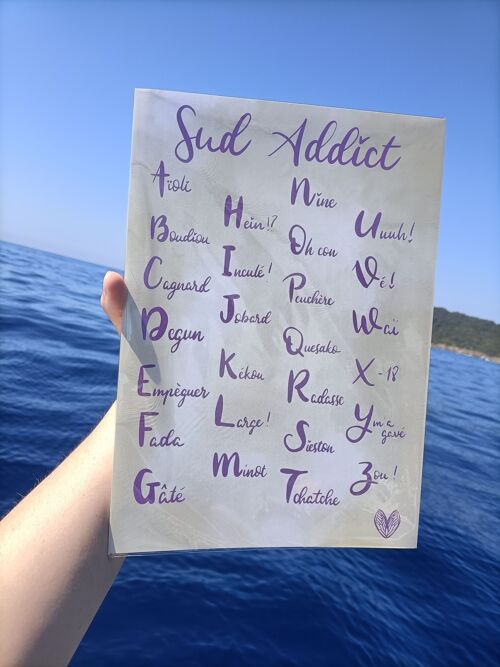 Sud Addict
Aïoli
Boudiou
Cagnard
Degun
Empèguer
Fada
Gâté
Hein!?
Inculé!
Jobard
Kékou
Large!
Minot
Nine
Oh con
Peuchère
Quesako
Radasse
Sieston
Tchatche
Uuuh!
Vé!
Wai
X-18
Y m'a
gavé
Zou!